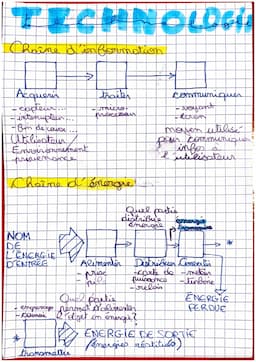 TECHNOLOGIE
Chaîne d'information
Acquérir traiter communiquer
- capteur... - micro- - voyant
- interrupteur... processeur - écran
- Bon de caisse...
Utilisateur moyen utilisé
Environnement pour communiquer
provenance infos à
l'utilisateur
Chaîne d'énergie
Quel partie
distribue
énergie
énergie
NOM
DE
L'ÉNERGIE
D'ENTRÉE
Alimenter Distribuer Convertir
- prise - carte de - moteur
- pile puissance - turbine
- relais
Quel partie
permet d'alimenter
l'objet en énergie?
ÉNERGIE
PERDUE
- engrenage
ÉNERGIE DE SORTIE
(énergies restituées)
transmettre